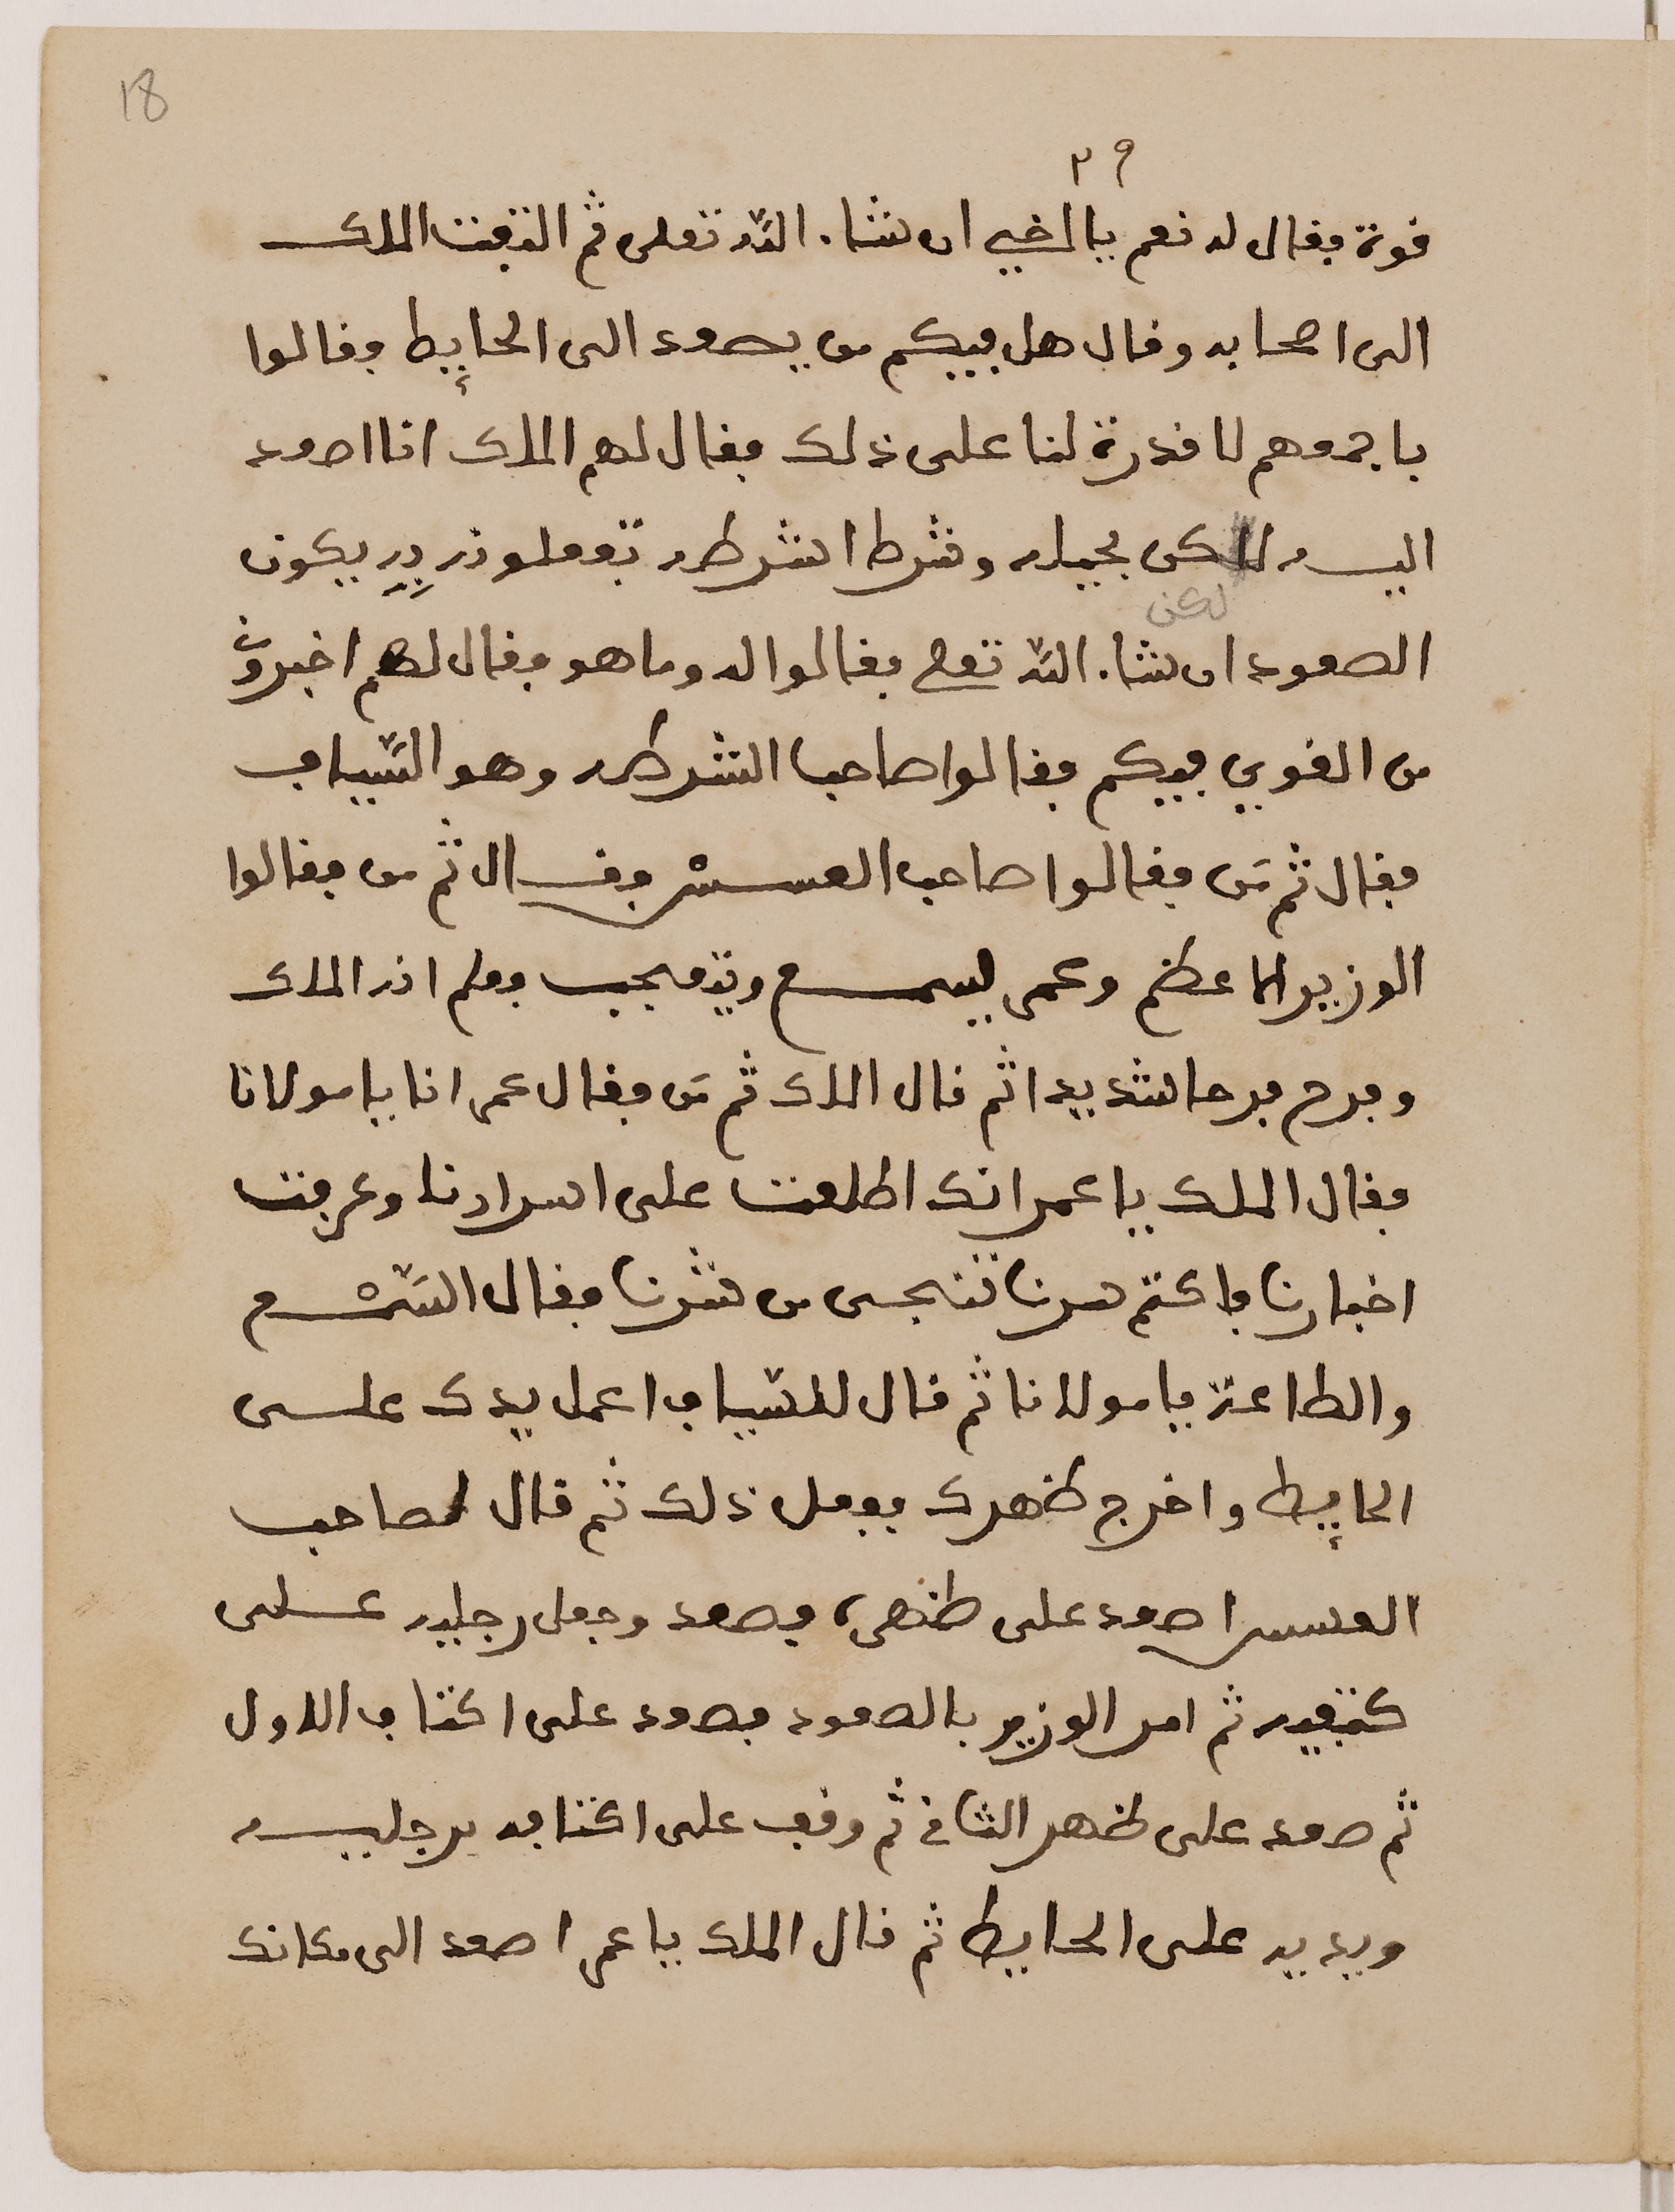 18
٣٩
قوة فقال له نعم يا اخي ان شاء الله تعلى ثم التفت الملك
الى اصحابه وقال هل فيكم من يصعد الى الحايط فقالوا
باجمعهم لا قدرة لنا على ذلك فقال لهم الملك انا اصعد
اليه لاكن بحيلة وشرط اشرطه تفعلونه به يكون
لكن
الصعود ان شاء الله تعلى فقالوا له وما هو فقال لهم اخبروني
من القوي فيكم فقالوا صاحب الشرطة وهو السياف
فقال ثم من فقالوا صاحب العسس فقال ثم من فقالوا
الوزير الاعظم وعمر يسمع ويتعجب فعلم انه الملك
وفرح فرحا شديدا ثم قال الملك ثم من فقال عمر انا يا مولانا
فقال الملك يا عمر انك اطلعت على اسرارنا وعرفت
اخبارنا فاكتم سرنا تنجى من شرنا فقال السمع
والطاعة يا مولانا ثم قال للسياف اعمل يدك على
الحايط واخرج ظهرك ففعل ذلك ثم قال لصاحب
العسس اصعد على ظهره فصعد وجعل رجليه على
كتفيه ثم امر الوزير بالصعود فصعد على اكتاف الاول
ثم صعد على ظهر الثاني ثم وقف على اكتافه برجليه
ويديه على الحايط ثم قال الملك يا عمر اصعد الى مكانك